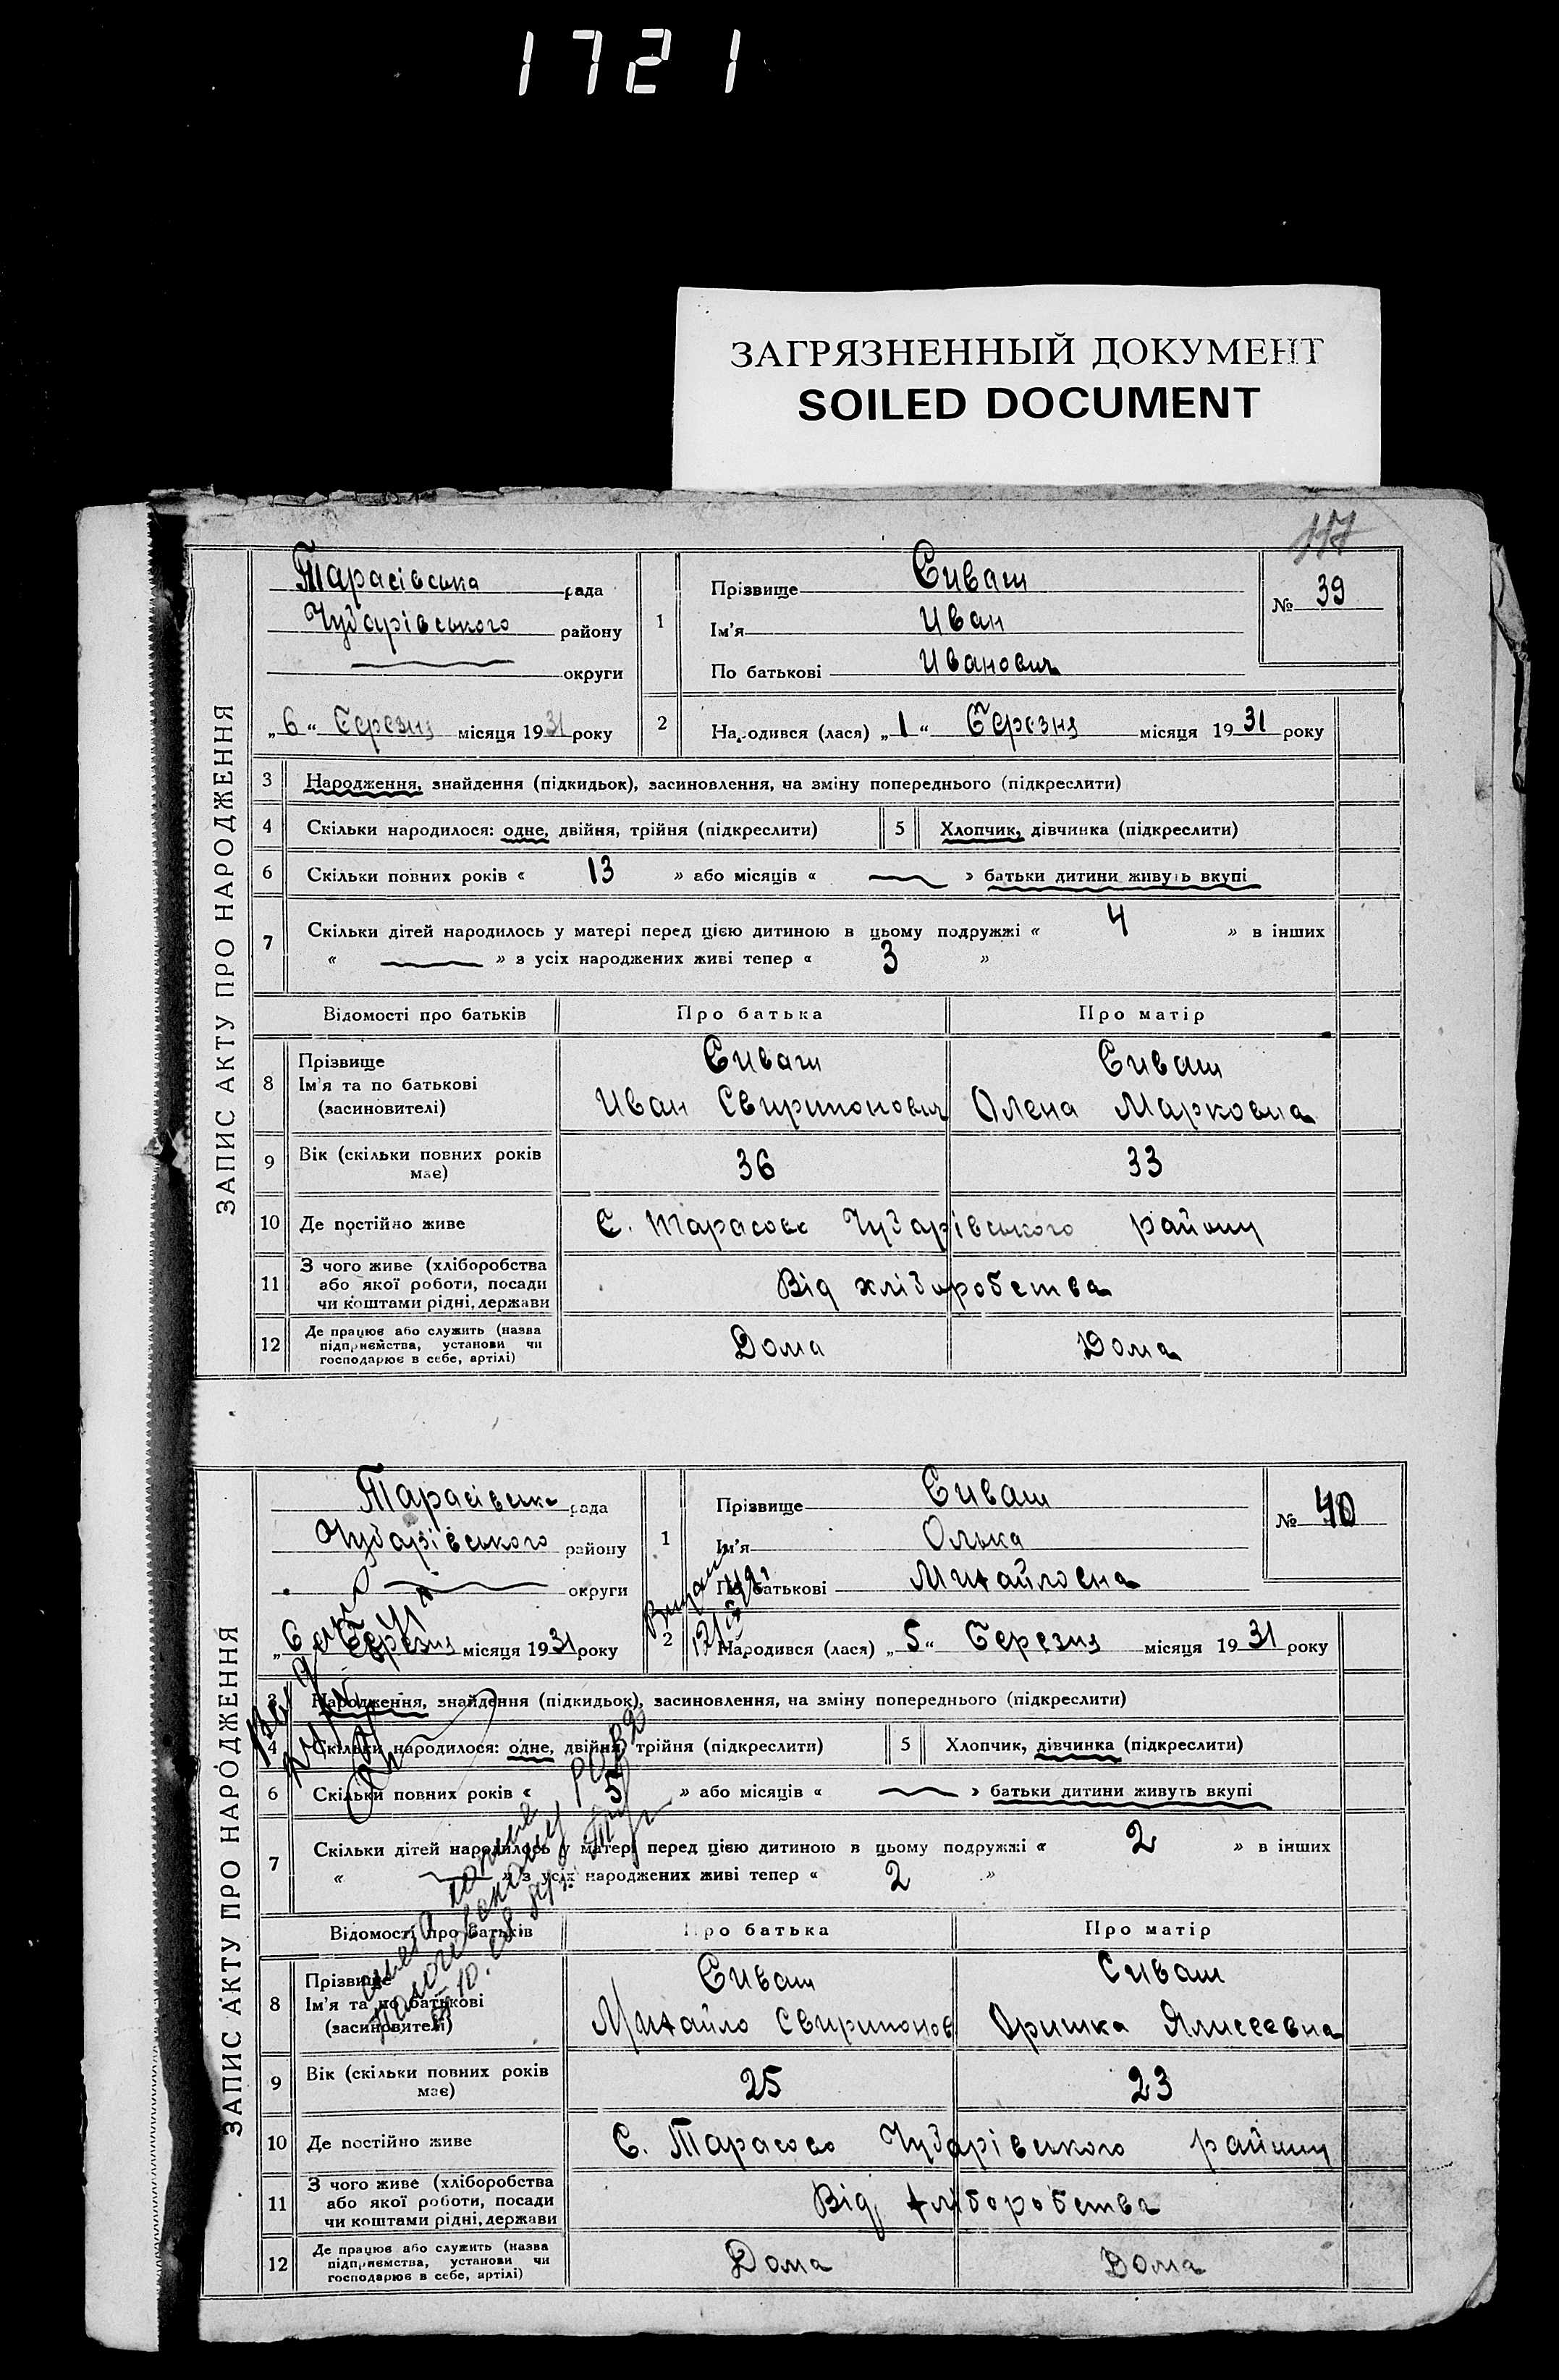 1721
ЗАГРЯЗНЕННЫЙ ДОКУМЕНТ
SOILED DOCUMENT
117
ЗАПИС АКТУ ПРО НАРОДЖЕННЯ
Тарасівська рада
Чубарівського району
округи
„6“ Березня місяця 1931 року
1 Прізвище Сиваш
Ім'я Иван
По батькові Иванович
№ 39
2 Народився (лася) „1“ Березня місяця 1931 року
3 Народження, знайдення (підкидьок), засиновлення, на зміну попереднього (підкреслити)
4 Скільки народилося: одне, двійня, трійня (підкреслити) 5 Хлопчик, дівчинка (підкреслити)
6 Скільки повних років « 13 » або місяців « — » батьки дитини живуть вкупі
7 Скільки дітей народилось у матері перед цією дитиною в цьому подружжі « 4 » в інших
« — » з усіх народжених живі тепер « 3 »
Відомості про батьків Про батька Про матір
8 Прізвище Сиваш Сиваш
Ім'я та по батькові Иван Свирипонович Олена Марковна
(засиновителі)
9 Вік (скільки повних років має) 36 33
10 Де постійно живе С. Тарасовс Чубарівського району
11 З чого живе (хліборобства
або якої роботи, посади Від хліборобства
чи коштами рідні, держави
12 Де працює або служить (назва
підприємства, установи чи Дома Дома
господарює в себе, артілі)
ЗАПИС АКТУ ПРО НАРОДЖЕННЯ
Тарасівська рада
Чубарівського району
округи
„6“ Березня місяця 1931 року
1 Прізвище Сиваш
Ім'я Олька
По батькові Михайловна
№ 40
2 Народився (лася) „5“ Березня місяця 1931 року
3 Народження, знайдення (підкидьок), засиновлення, на зміну попереднього (підкреслити)
4 Скільки народилося: одне, двійня, трійня (підкреслити) 5 Хлопчик, дівчинка (підкреслити)
6 Скільки повних років « 5 » або місяців « — » батьки дитини живуть вкупі
7 Скільки дітей народилось у матері перед цією дитиною в цьому подружжі « 2 » в інших
« — » з усіх народжених живі тепер « 2 »
Відомості про батьків Про батька Про матір
8 Прізвище Сиваш Сиваш
Ім'я та по батькові Михайло Свирипонов Оришка Ялисеевна
(засиновителі)
9 Вік (скільки повних років має) 25 23
10 Де постійно живе С. Тарасово Чубарівського району
11 З чого живе (хліборобства
або якої роботи, посади Від хліборобства
чи коштами рідні, держави
12 Де працює або служить (назва
підприємства, установи чи Дома Дома
господарює в себе, артілі)